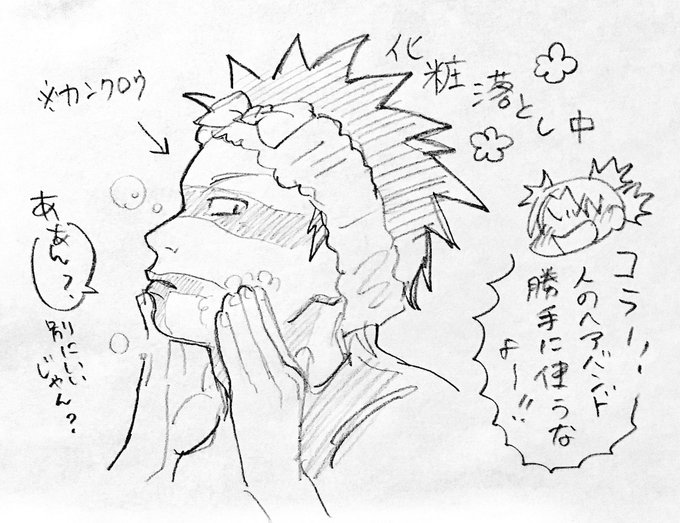 化粧落とし中
※カンクロウ
コラー!!
人のヘアバンド
勝手に使うな
よー!!
ああん?
別にいい
じゃん?